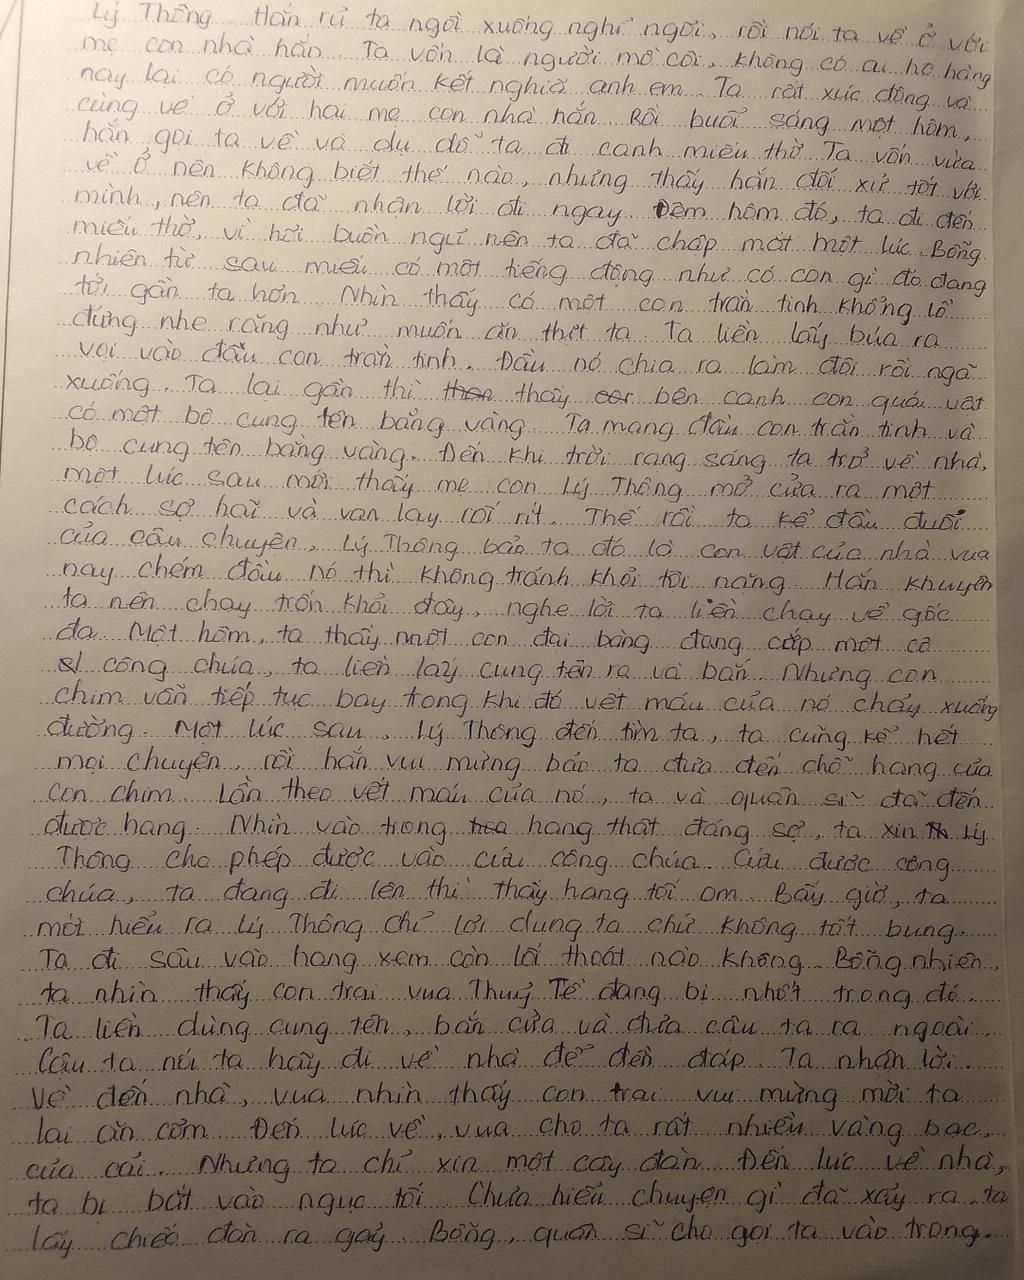 Lý Thông Hắn rủ ta ngồi xuống nghỉ ngơi, rồi nói ta về ở với
mẹ con nhà hắn. Ta vốn là người mồ côi, không có ai họ hàng
nay lại có người muốn kết nghĩa anh em. Ta rất xúc động và
cùng về ở với hai mẹ con nhà hắn Rồi buổi sáng một hôm,
hắn gọi ta về và dụ dỗ ta đi canh miếu thờ Ta vốn vừa
về ở nên không biết thế nào, nhưng thấy hắn đối xử tốt với
mình, nên ta đã nhận lời đi ngay. Đêm hôm đó, ta đi đến
miếu thờ, vì hơi buồn ngủ nên ta đã chợp mắt một lúc. Bỗng
nhiên từ sau miếu có một tiếng động như có con gì đó đang
tới gần ta hơn. Nhìn thấy có một con trăn tinh khổng lồ
đứng nhe răng như muốn ăn thịt ta Ta liền lấy búa ra
vọi vào đầu con trăn tinh. Đầu nó chia ra làm đôi rồi ngã
xuống. Ta lại gần thì thấy bên cạnh con quái vật
có một bộ cung tên bằng vàng. Ta mang đầu con trăn tinh và
bộ cung tên bằng vàng. Đến khi trời rạng sáng ta trở về nhà,
một lúc sau mới thấy mẹ con Lý Thông mở cửa ra một
cách sợ hãi và van lạy rối rít. Thế rồi ta kể đầu đuôi
của câu chuyện, Lý Thông bảo ta đó là con vật của nhà vua
nay chém đầu nó thì không tránh khỏi tội nặng Hắn khuyên
ta nên chạy trốn khỏi đây, nghe lời ta liền chạy về gốc
đa. Một hôm, ta thấy một con đại bàng đang cắp một cô
công chúa, ta liền lấy cung tên ra và bắn. Nhưng con
chim vẫn tiếp tục bay trong khi đó vết máu của nó chảy xuống
đường. Một lúc sau, Lý Thông đến tìm ta, ta cũng kể hết
mọi chuyện, rồi hắn vui mừng bảo ta đưa đến chỗ hang của
con chim. Lần theo vết máu của nó, ta và quân sĩ đã đến
được hang. Nhìn vào trong hang thật đáng sợ, ta xin Lý
Thông cho phép được vào cứu công chúa. Cứu được công
chúa, ta đang đi lên thì thấy hang tối om. Bấy giờ, ta
mới hiểu ra Lý Thông chỉ lợi dụng ta chứ không tốt bụng.
Ta đi sâu vào hang xem còn lối thoát nào không. Bỗng nhiên,
ta nhìn thấy con trai vua Thuỷ Tề đang bị nhốt trong đó.
Ta liền dùng cung tên, bắn cửa và đưa cậu ta ra ngoài.
Cậu ta nói ta hãy đi về nhà để đền đáp. Ta nhận lời.
Về đến nhà, vua nhìn thấy con trai vui mừng mời ta
lại ăn cơm Đến lúc về, vua cho ta rất nhiều vàng bạc,
của cải. Nhưng ta chỉ xin một cây đàn. Đến lúc về nhà,
ta bị bắt vào ngục tối Chưa hiểu chuyện gì đã xảy ra, ta
lấy chiếc đàn ra gảy. Bỗng, quân sĩ cho gọi ta vào trong.